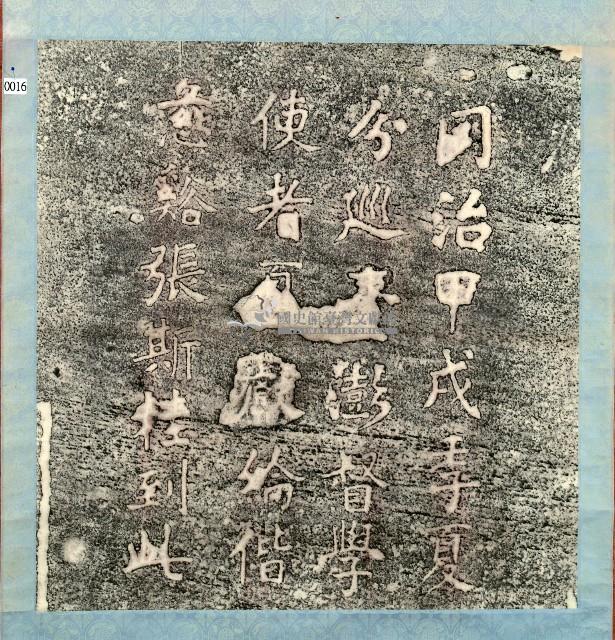 0016
同治甲戌季夏
分巡臺澎督學
使者綸偕
慈谿張斯桂到此
國史館臺灣文獻館
TAIWAN HISTORICA